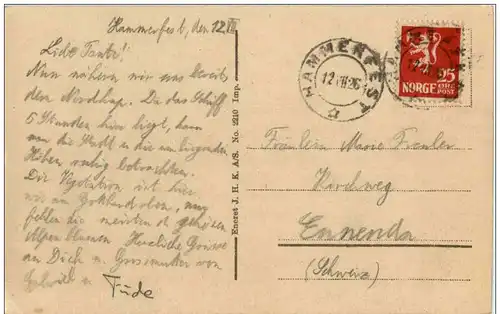 Hammerfest, den 12.VII
Liebe Tante!
Nun nähern wir uns bereits
dem Nordkap. Da das Schiff
5 Stunden hier liegt, kann
man die Stadt u. die umliegenden
Höhen ruhig betrachten.
Die Vegetation ist hier
wie am, nur
fehlen die meisten schönen
Alpenblumen. Herzliche Grüsse
an Dich u. Grossmutter von
u. Trude
Eneret J. H. K. A/S. No. 2210 Imp.
HAMMERFEST
12 VII 26
NORGE
25
ØRE
POST
Fräulein Marie
Kirchweg
Ennenda
(Schweiz)